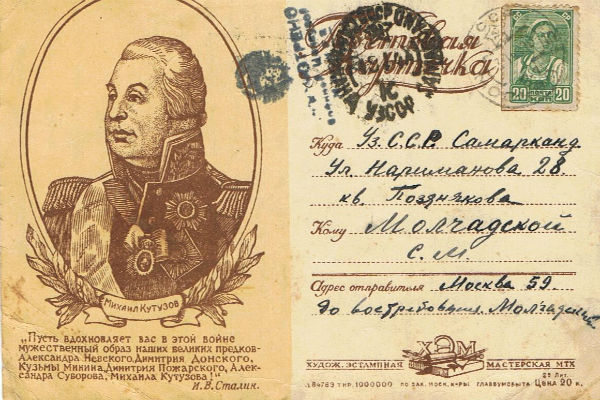 Почтовая
Карточка
ПРОСМОТРЕНО
УзССР
20 ПОЧТА СССР 20
Куда Уз.С.С.Р. Самарканд
Ул Нариманова 28.
кв. Позднякова
Кому Молчадской
С. М.
Адрес отправителя Москва 59
До востребования Молчадский
МИХАИЛ КУТУЗОВ
„Пусть вдохновляет вас в этой войне
мужественный образ наших великих предков-
Александра Невского, Димитрия Донского,
Кузьмы Минина, Димитрия Пожарского, Алек-
сандра Суворова, Михаила Кутузова!"
И. В. Сталин.
ХЭМ
ХУДОЖ. ЭСТАМПНАЯ МАСТЕРСКАЯ МТХ
Л84763 ТИР. 1000000 ПО ЗАК. МОСК. К-РЫ ГЛАВВУМСБЫТА Цена 20 к.